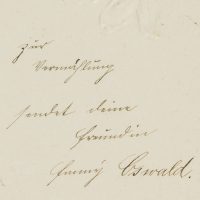 zur
Vermählung
sendet deine
Freundin
Emmy Oswald.